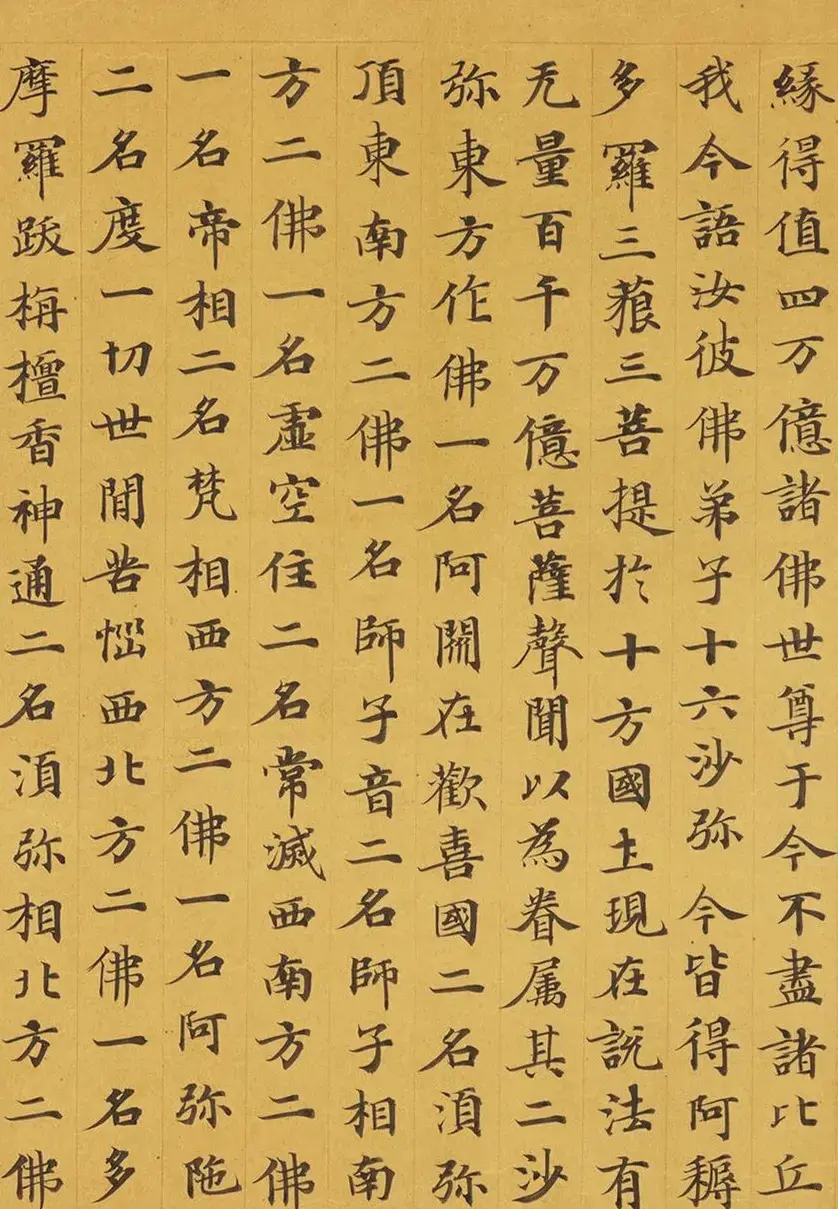 緣得值四万億諸佛世尊于今不盡諸比丘
我今語汝彼佛弟子十六沙弥今皆得阿耨
多羅三藐三菩提於十方國土現在說法有
无量百千万億菩薩聲聞以為眷属其二沙
弥東方作佛一名阿閦在歡喜國二名湏弥
頂東南方二佛一名師子音二名師子相南
方二佛一名虛空住二名常滅西南方二佛
一名帝相二名梵相西方二佛一名阿弥陁
二名度一切世間苦惱西北方二佛一名多
摩羅跋栴檀香神通二名湏弥相北方二佛